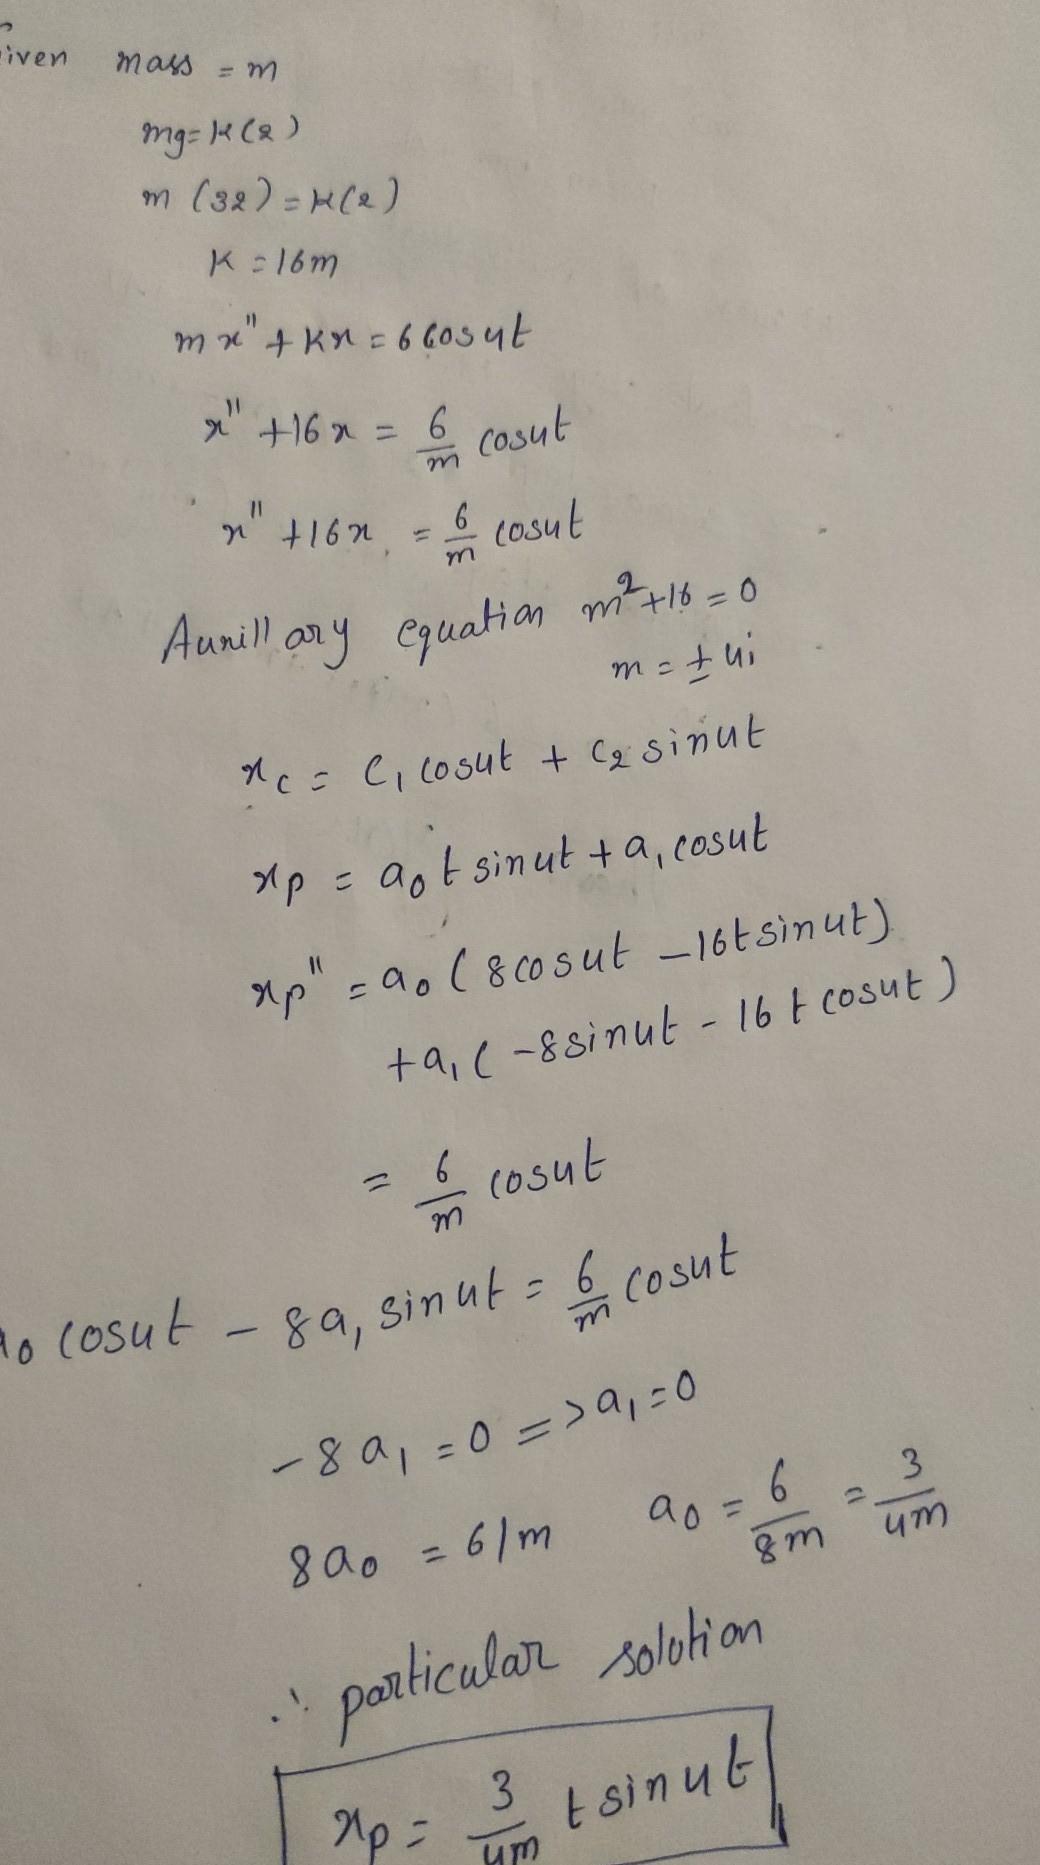 iven mass = m
mg = k(2)
m (32) = k(2)
k = 16m
mx" + kx = 6 cos4t
x" + 16x = 6/m cos4t
x" + 16x = 6/m cos4t
Auxillary equation m² + 16 = 0
m = ± 4i
xc = C₁ cos4t + C₂ sin4t
xp = a₀ t sin4t + a₁ cos4t
xp" = a₀ ( 8cos4t - 16t sin4t)
+ a₁ ( -8sin4t - 16 t cos4t )
= 6/m cos4t
a₀ cos4t - 8a₁ sin4t = 6/m cos4t
-8a₁ = 0 => a₁ = 0
8a₀ = 6/m a₀ = 6/8m = 3/4m
∴ particular solution
xp = 3/4m t sin4t